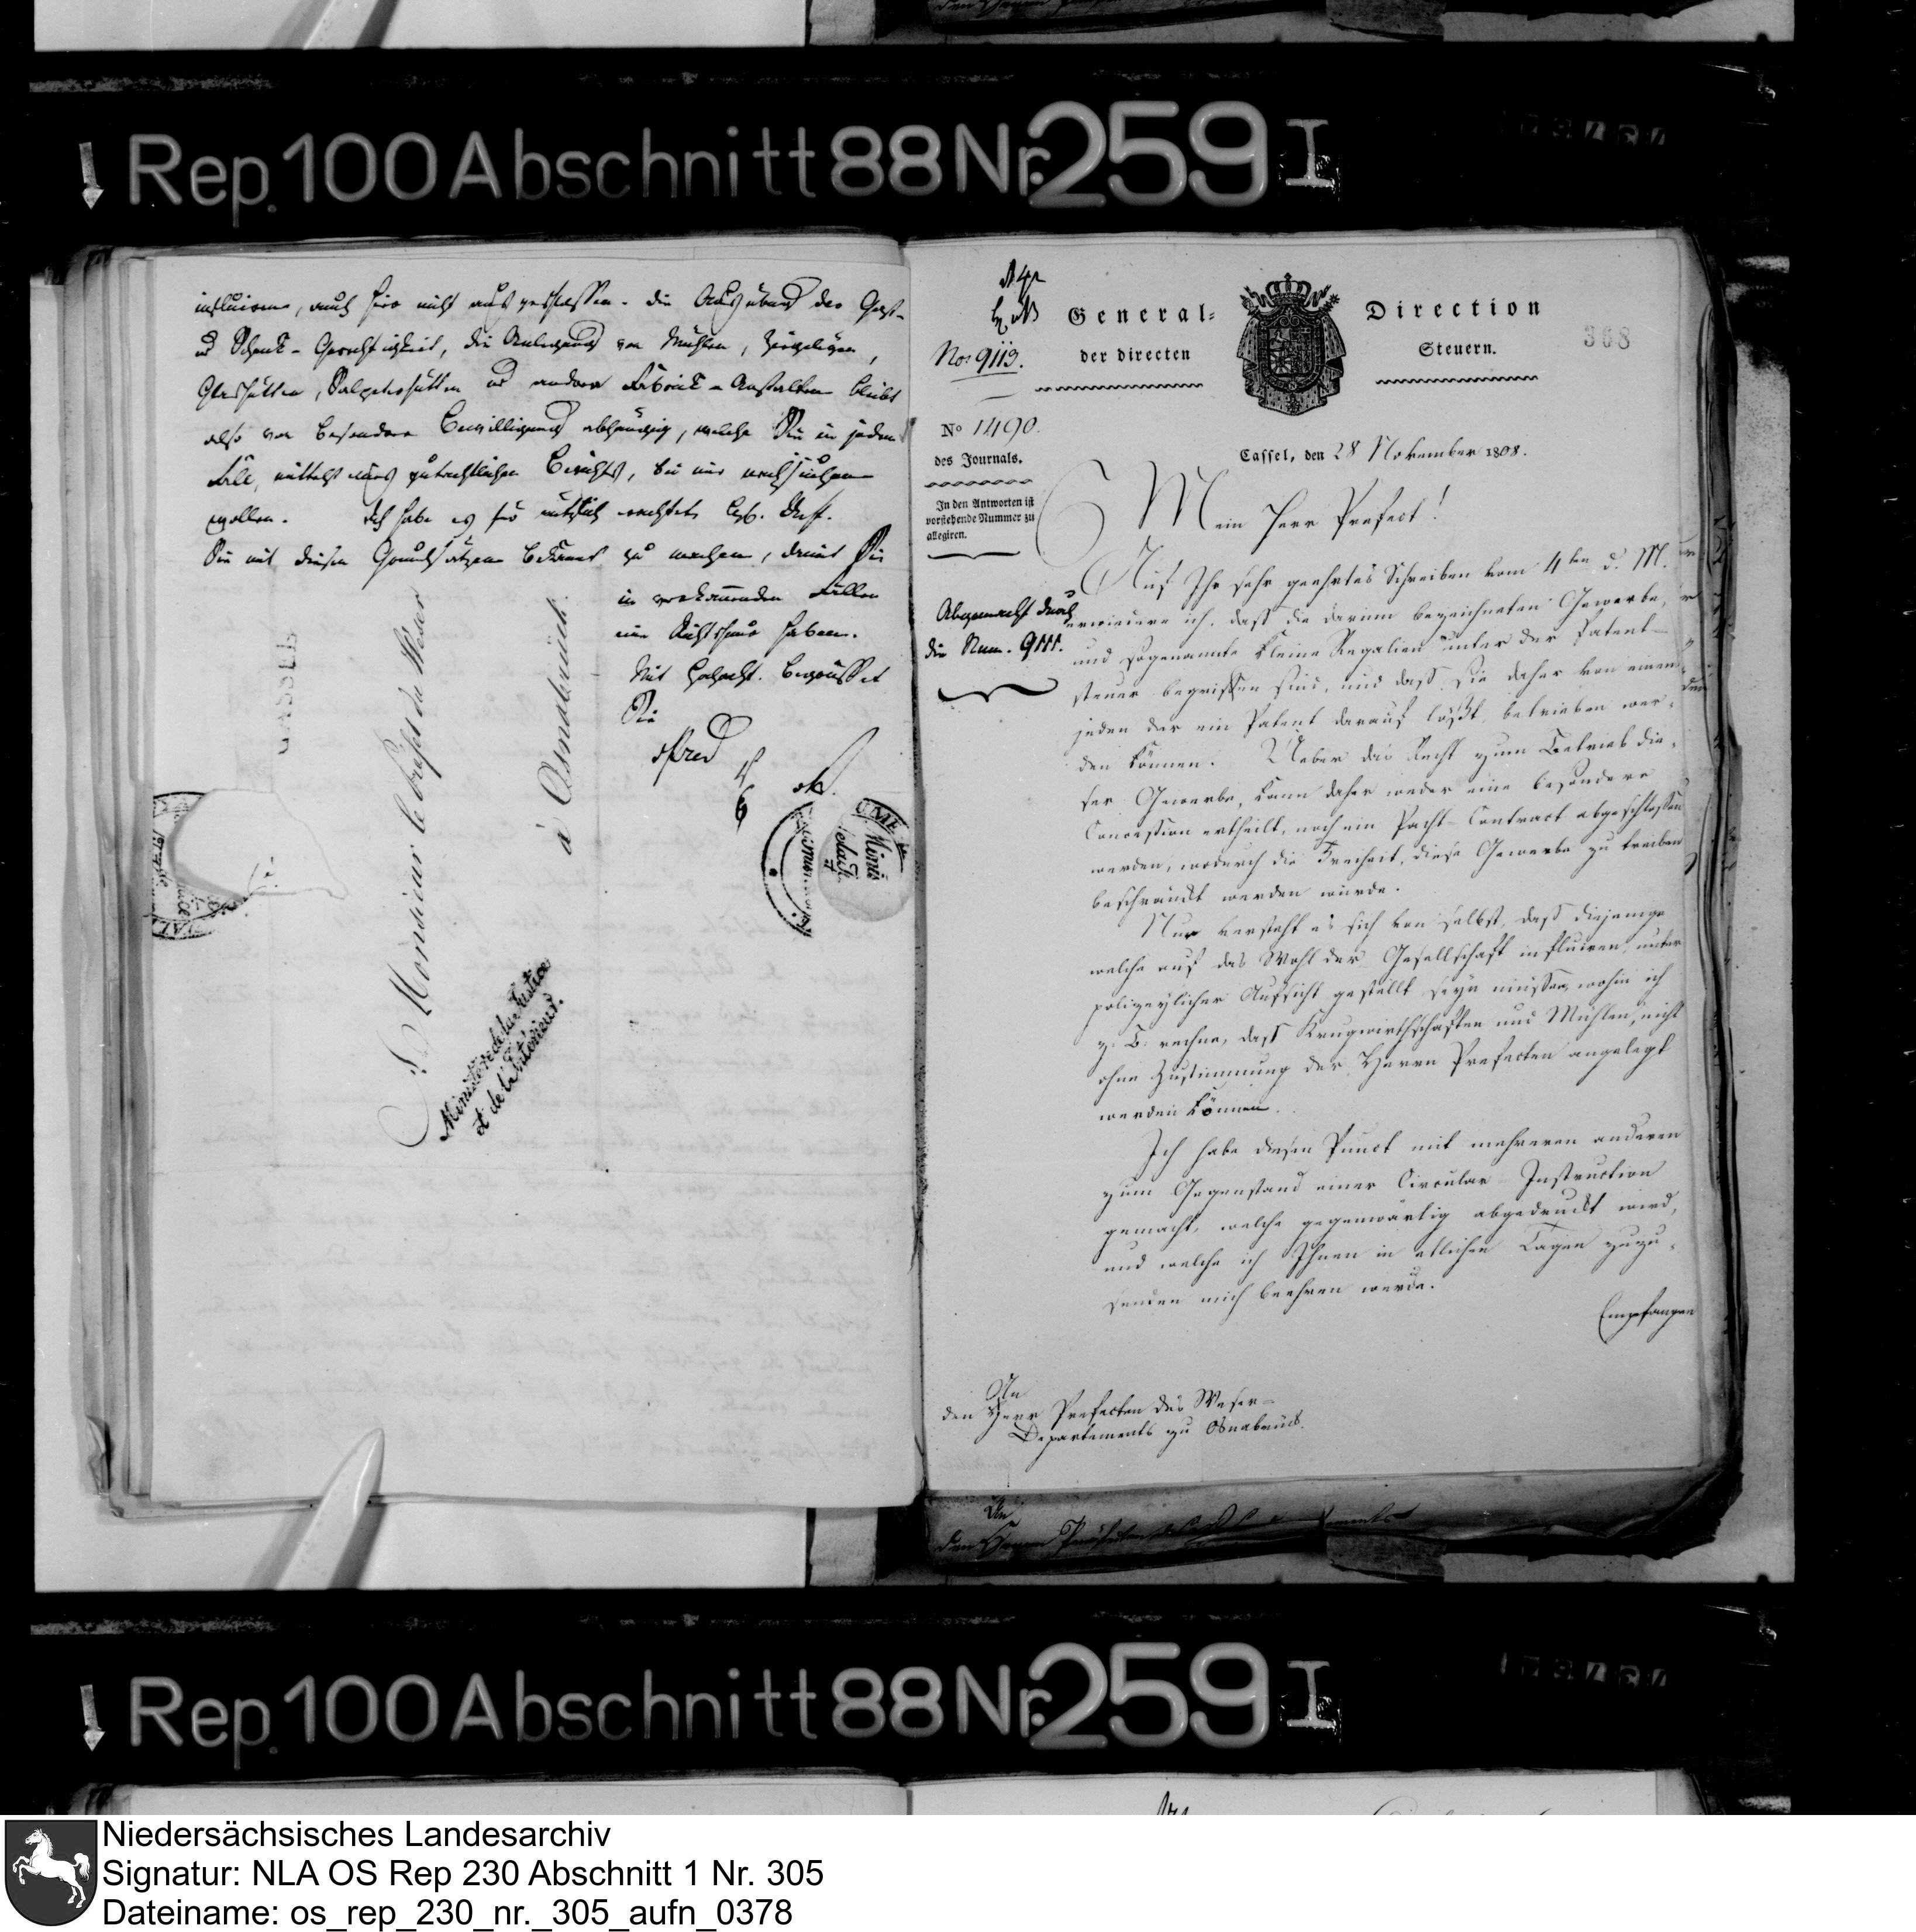 Rep. 100 Abschnitt 88 Nr. 259 I
influiren, auch hier nicht ausgeschlossen. Die Ausübung der Gast-
u Schenk-Gerechtigkeit, die Anlegung von Mühlen, Ziegeleyen,
Glashütten, Salpeterhütten u andern Fabrick-Anstalten bleibt
also von besonderer Bewilligung abhängig, welche Sie in jedem
Falle, mittelst eines gutachtlichen Berichts, bei mir nachsuchen
wollen. Ich habe es für nützlich erachtet,
Sie mit diesen Grundsätzen bekannt zu machen, damit Sie
in vorkommenden Fällen
eine Richtschnur haben.
Mit Hochacht. begrüsset
Sie
à Monsieur le Préfet du Weser
à Osnabrück.
Ministère de la Justice
et de l'Intérieur.
CASSEL
No: 9113.
General-Direction
der directen Steuern.
368
No 1490.
des Journals.
In den Antworten ist
vorstehende Nummer zu
allegiren.
Abgemacht durch
die Num. 9111.
Cassel, den 28 November 1808.
Mein Herr Prefect!
Auf Ihr sehr geehrtes Schreiben vom 4ten d. M.
erwiedere ich, dass die darinn bezeichneten Gewerbe,
und sogenannte kleine Regalien unter der Patent-
steuer begriffen sind, und dass sie daher von einem
jeden der ein Patent darauf lößt, betrieben wer-
den können. Ueber das Recht zum Betrieb die-
ser Gewerbe, kann daher weder eine besondere
Concession ertheilt, noch ein Pacht-Contract abgeschlossen
werden, wodurch die Freiheit, diese Gewerbe zu treiben
beschränkt werden würde.
Nur versteht es sich von selbst, dass diejenige
welche auf das Wohl der Gesellschaft influiren, unter
polizeylicher Aufsicht gestellt seyn müssen, wohin ich
z. B. rechne, dass Krugwirthschaften und Mühlen, nicht
ohne Zustimmung der Herrn Prefecten angelegt
werden können.
Ich habe diesen Punct mit mehreren anderen
zum Gegenstand einer Circular-Instruction
gemacht, welche gegenwärtig abgedruckt wird,
und welche ich Ihnen in etlichen Tagen zuzu-
senden mich beehren werde.
Empfangen
An
den Herr Prefecten des Weser-
Departements zu Osnabrück.
An
den Herrn
Rep. 100 Abschnitt 88 Nr. 259 I
Niedersächsisches Landesarchiv
Signatur: NLA OS Rep 230 Abschnitt 1 Nr. 305
Dateiname: os_rep_230_nr._305_aufn_0378